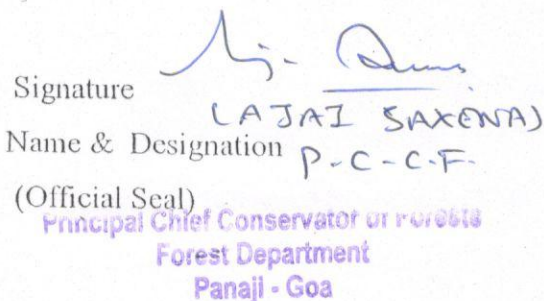 Signature
(AJAI SAXENA)
Name & Designation P.C.C.F.
(Official Seal)
Principal Chief Conservator of Forests
Forest Department
Panaji - Goa